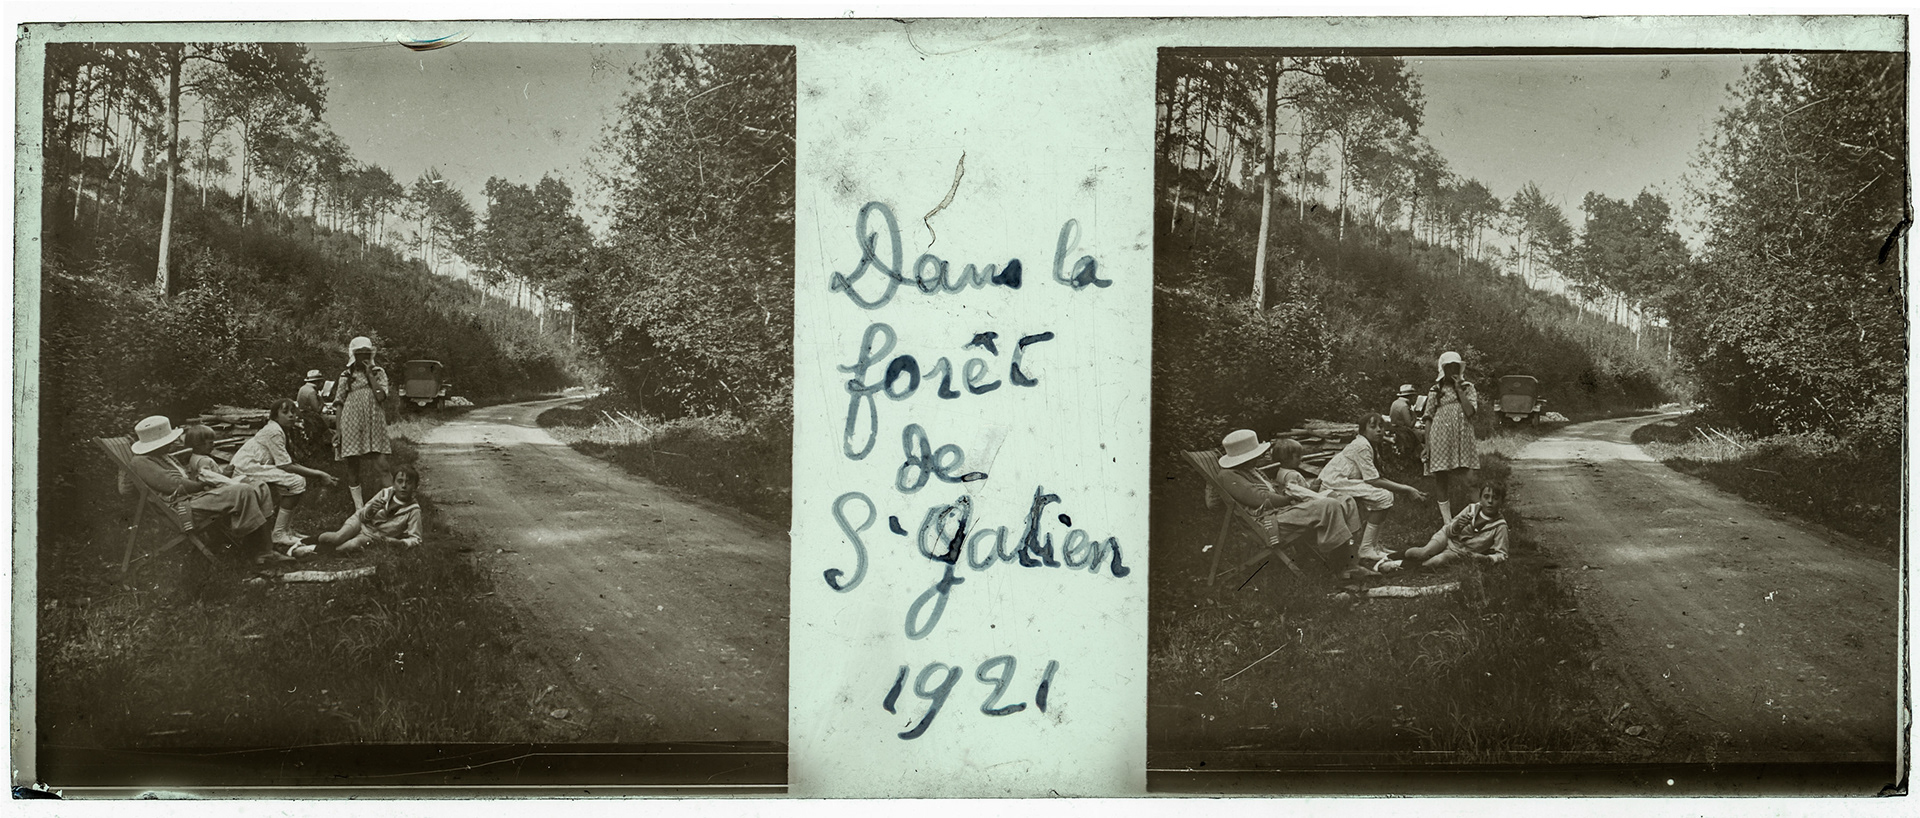 Dans la
forêt
de
S' Gatien
1921